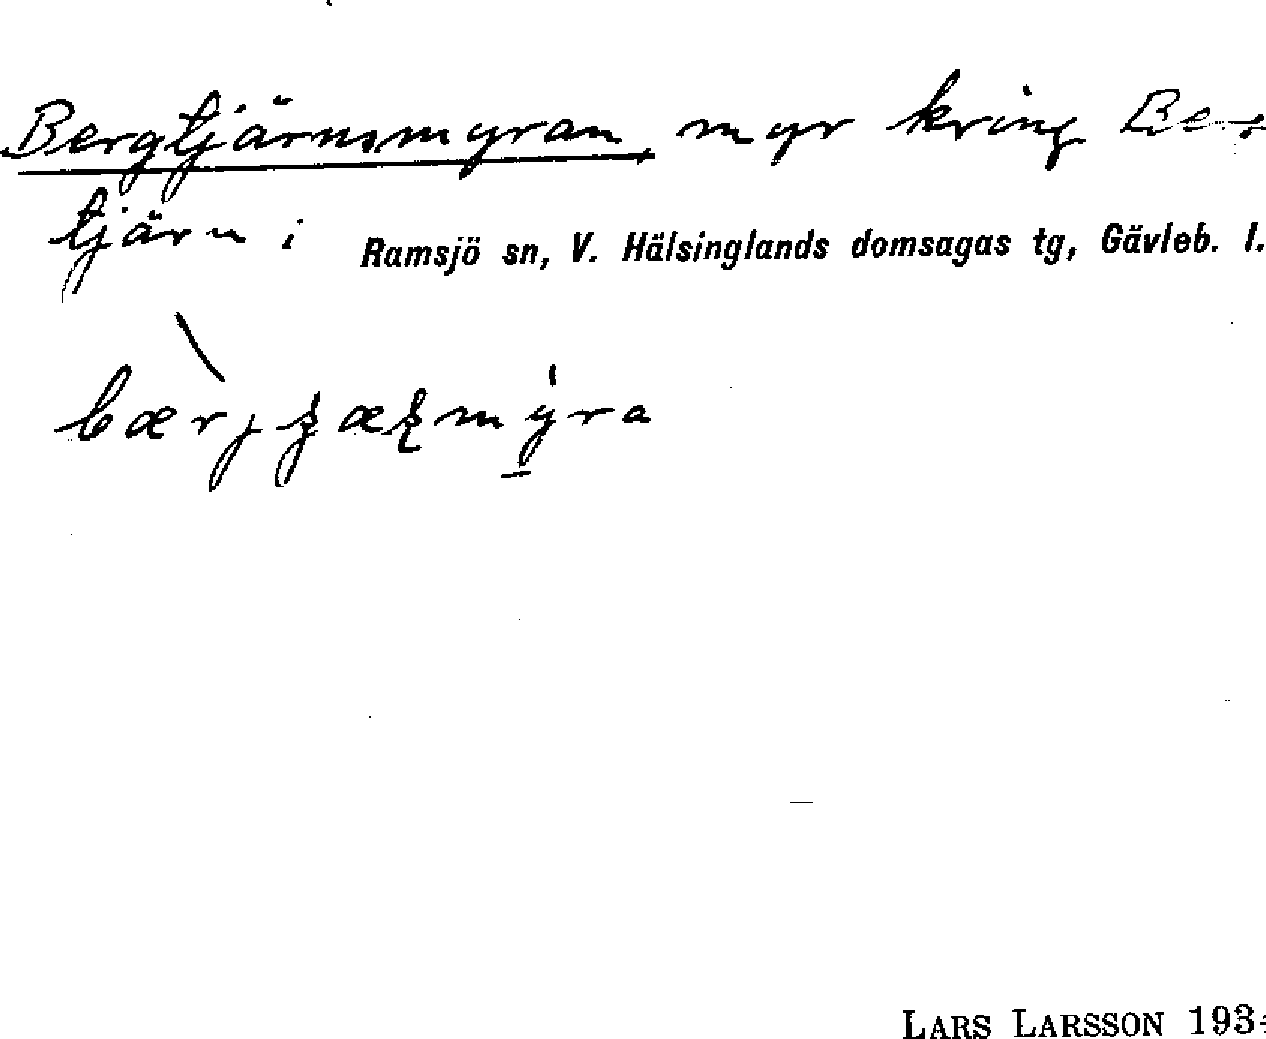 Bergtjärnsmyran, myr kring
tjärn i Ramsjö sn, V. Hälsinglands domsagas tg, Gävleb. l.
LARS LARSSON